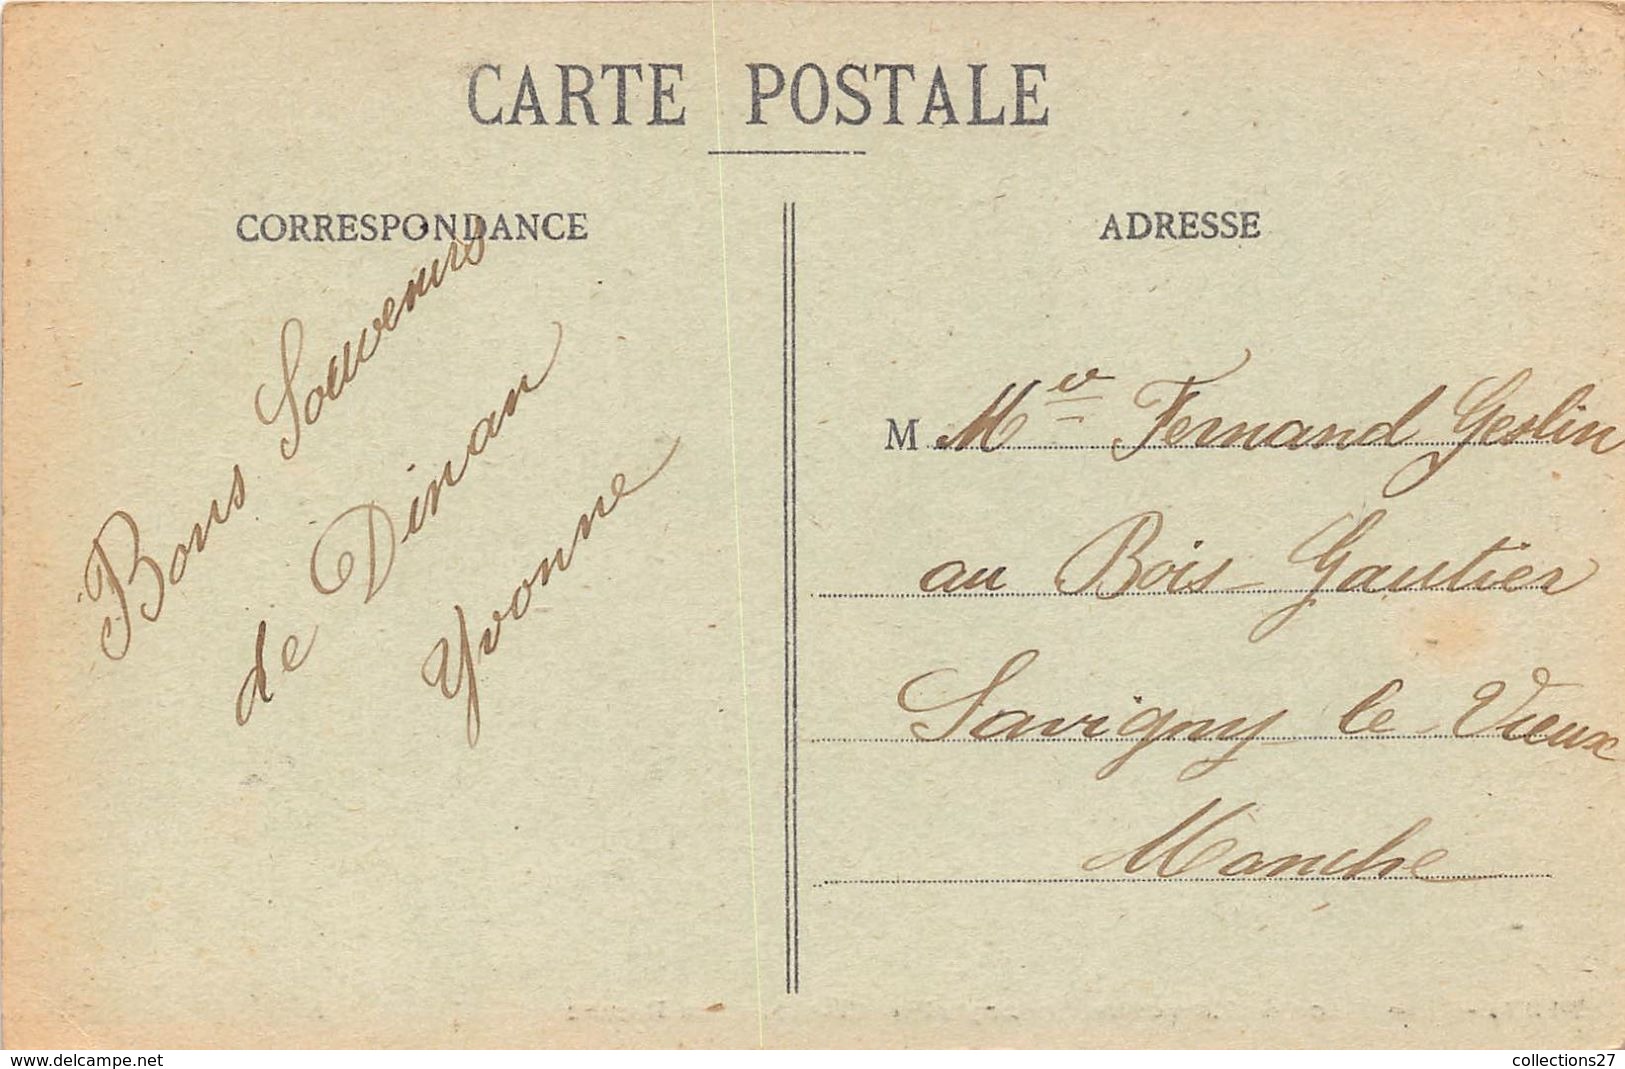 CARTE POSTALE
CORRESPONDANCE
Bons Souvenirs
de Dinan
Yvonne
ADRESSE
M Mr Fernand Geslin
au Bois Gautier
Savigny le Vieux
Manche
www.delcampe.net
collections27